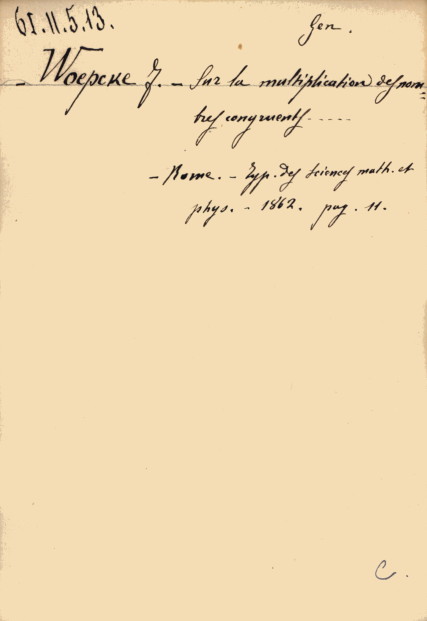 61.11.5.13.
Gen.
Woepcke F. — Sur la multiplication des nom=
bres congruents-----
— Rome. — Typ. des sciences math. et
phys. - 1862. pag. 11.
C.